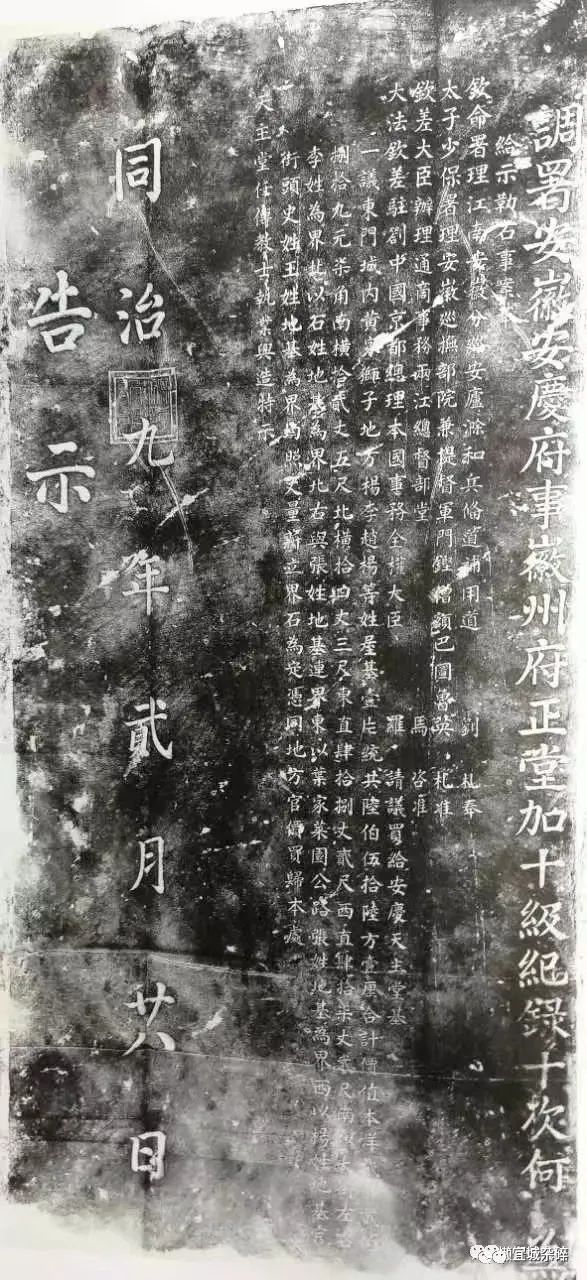 調署安徽安慶府事徽州府正堂加十級紀錄十次何 為
給示勒石事案
欽命署理江南安徽分巡安廬滁和兵備道補用道 劉 札奉
太子少保署理安徽巡撫部院兼提督軍門鏗僧額巴圖魯英 札准
欽差大臣辦理通商事務兩江總督部堂 馬 咨准
大法欽差駐劄中國京都總理本國事務全權大臣 羅 請議買給安慶天主堂基
一議東門城內黃家獅子地方楊李趙楊等姓屋基壹片統共陸伯伍拾陸方壹厘合計價值本洋
捌拾九元柒角南橫拾貳丈五尺北橫拾四丈三尺東直肆拾捌丈貳尺西直肆拾柒丈貳尺南
李姓為界北以石姓地基為界北右與張姓地基連界東以葉家菜園公路張姓地基為界西以楊姓地基
街頭史姓王姓地基為界均照丈量新立界石為定憑同地方官價買歸本處
天主堂任傳教士執業興造特示
同治九年貳月廿八日
告示
宜城杂碎